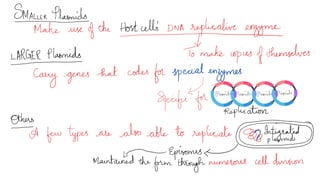 SMALLER Plasmids
Make use of the Host cell's DNA replicative enzyme
To make copies of themselves
LARGER Plasmids
Carry genes that codes for special enzymes
Specific for
Plasmid Plasmid Plasmid Plasmid
Replication
Others
A few types are also able to replicate
integrated plasmids
Episomes
Maintained the form through numerous cell division